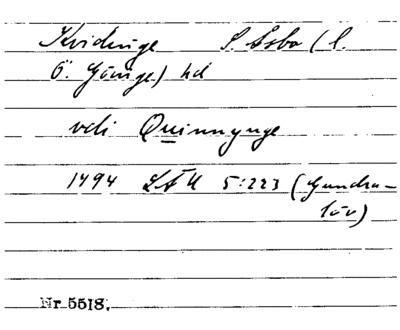 Kvidinge S. Åsbo (l.
Ö. Göinge) hd
vdi Quinnynge
1494 LÄU 5:223 (Gundra-
löv)
Nr 5518.